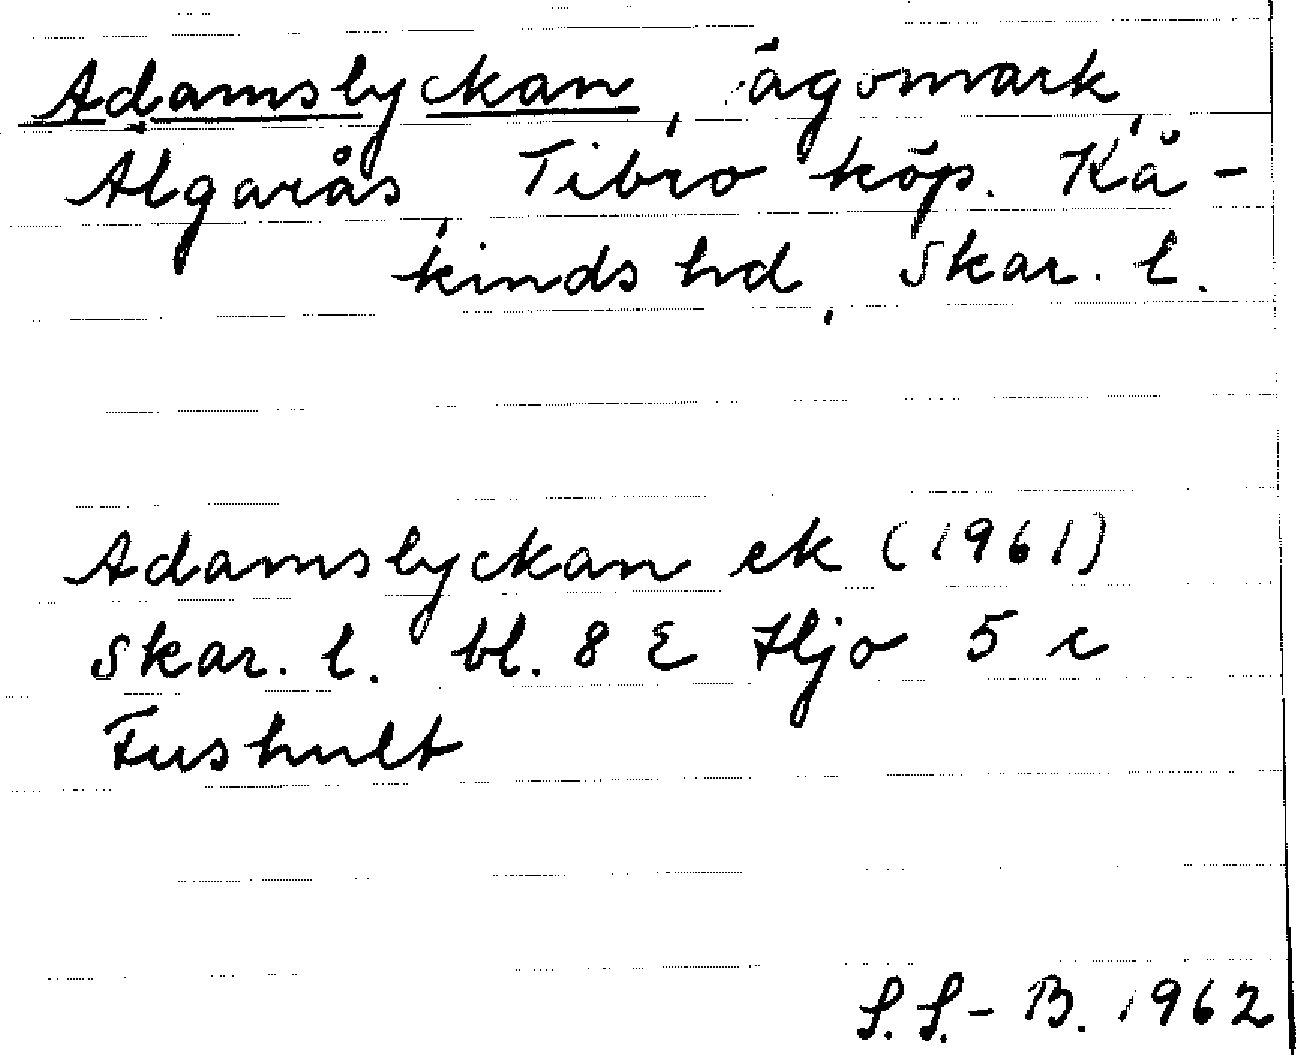 Adamslyckan, ägomark,
Älgarås, Tibro köp. Kå-
kinds hd, Skar. l.
Adamslyckan ek (1961)
Skar. l. bl. 8 E Hjo 5 c
Fushult
S.S.-B. 1962